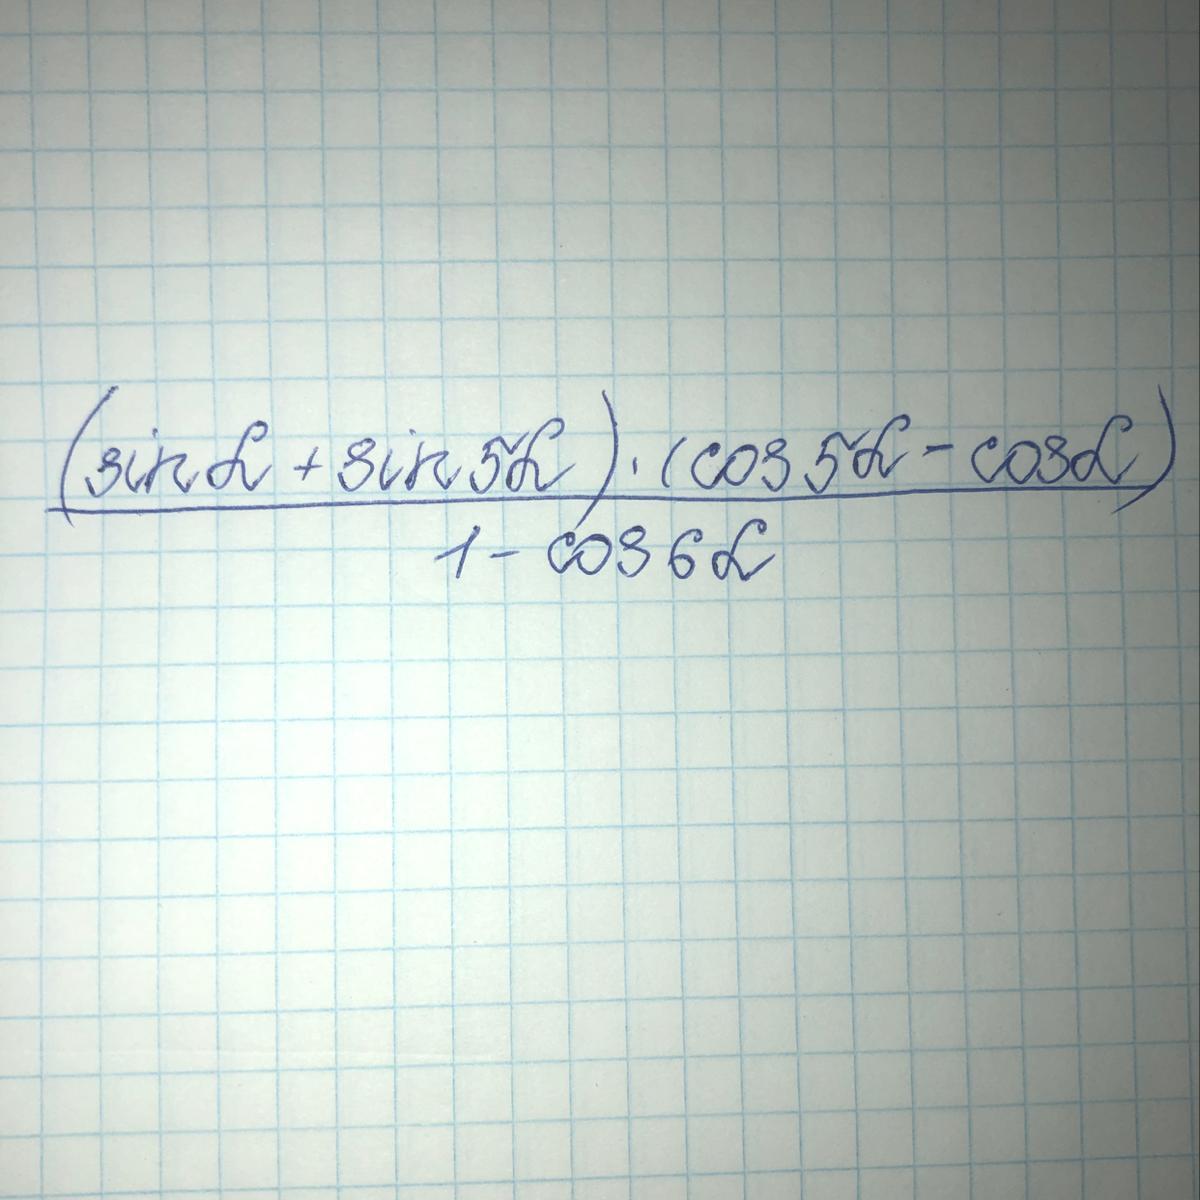 (sin α + sin 5α) · (cos 5α - cos α)
1 - cos 6α